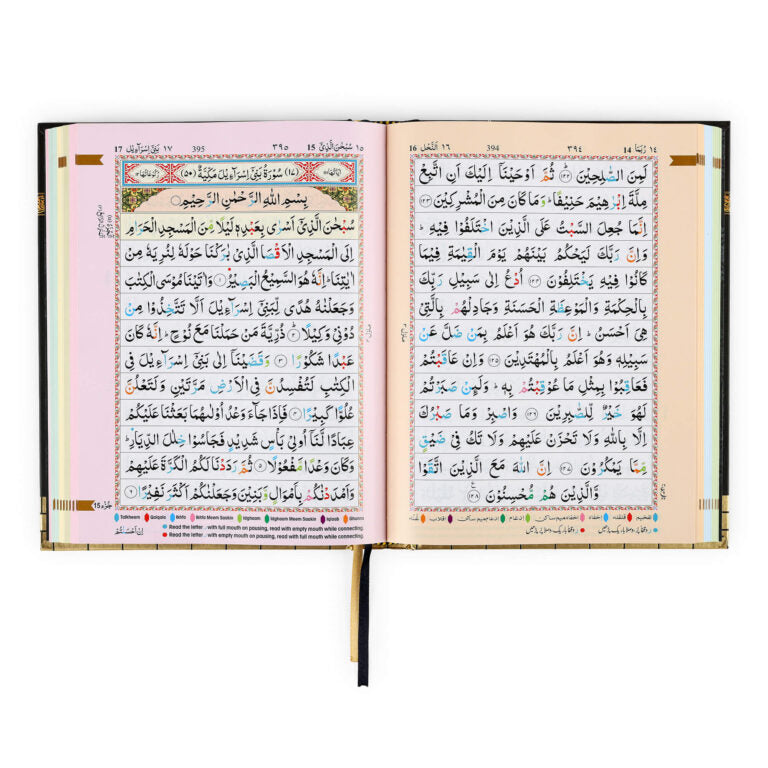 14 رُبَمَا ١٤
٣٩٤ 394
١٦ اَلنَّحْل 16
لَمِنَ الصّٰلِحِيْنَ ﴿۱۲۲﴾ ثُمَّ اَوْحَيْنَاۤ اِلَيْكَ اَنِ اتَّبِعْ
مِلَّةَ اِبْرٰهِيْمَ حَنِيْفًا ؕ وَمَا كَانَ مِنَ الْمُشْرِكِيْنَ ﴿۱۲۳﴾
اِنَّمَا جُعِلَ السَّبْتُ عَلَى الَّذِيْنَ اخْتَلَفُوْا فِيْهِ ؕ
وَاِنَّ رَبَّكَ لَيَحْكُمُ بَيْنَهُمْ يَوْمَ الْقِيٰمَةِ فِيْمَا
كَانُوْا فِيْهِ يَخْتَلِفُوْنَ ﴿۱۲۴﴾ اُدْعُ اِلٰى سَبِيْلِ رَبِّكَ
بِالْحِكْمَةِ وَالْمَوْعِظَةِ الْحَسَنَةِ وَجَادِلْهُمْ بِالَّتِيْ
هِيَ اَحْسَنُ ؕ اِنَّ رَبَّكَ هُوَ اَعْلَمُ بِمَنْ ضَلَّ عَنْ
سَبِيْلِهٖ وَهُوَ اَعْلَمُ بِالْمُهْتَدِيْنَ ﴿۱۲۵﴾ وَاِنْ عَاقَبْتُمْ
فَعَاقِبُوْا بِمِثْلِ مَا عُوْقِبْتُمْ بِهٖ ؕ وَلَئِنْ صَبَرْتُمْ
لَهُوَ خَيْرٌ لِّلصّٰبِرِيْنَ ﴿۱۲۶﴾ وَاصْبِرْ وَمَا صَبْرُكَ
اِلَّا بِاللّٰهِ وَلَا تَحْزَنْ عَلَيْهِمْ وَلَا تَكُ فِيْ ضَيْقٍ
مِّمَّا يَمْكُرُوْنَ ﴿۱۲۷﴾ اِنَّ اللّٰهَ مَعَ الَّذِيْنَ اتَّقَوْا
وَّالَّذِيْنَ هُمْ مُّحْسِنُوْنَ ﴿۱۲۸﴾
15 سُبْحٰنَ الَّذِيْ ١٥
٣٩٥ 395
١٧ بَنِيْ اِسْرَآءِيْل 17
(١٧) سُوْرَةُ بَنِيْۤ اِسْرَآءِيْلَ مَكِّيَّةٌ (٥٠)
بِسْمِ اللّٰهِ الرَّحْمٰنِ الرَّحِيْمِ
سُبْحٰنَ الَّذِيْۤ اَسْرٰى بِعَبْدِهٖ لَيْلًا مِّنَ الْمَسْجِدِ الْحَرَامِ
اِلَى الْمَسْجِدِ الْاَقْصَا الَّذِيْ بٰرَكْنَا حَوْلَهٗ لِنُرِيَهٗ مِنْ
اٰيٰتِنَا ؕ اِنَّهٗ هُوَ السَّمِيْعُ الْبَصِيْرُ ﴿۱﴾ وَاٰتَيْنَا مُوْسَى الْكِتٰبَ
وَجَعَلْنٰهُ هُدًى لِّبَنِيْۤ اِسْرَآءِيْلَ اَلَّا تَتَّخِذُوْا مِنْ
دُوْنِيْ وَكِيْلًا ﴿۲﴾ ذُرِّيَّةَ مَنْ حَمَلْنَا مَعَ نُوْحٍ ؕ اِنَّهٗ كَانَ
عَبْدًا شَكُوْرًا ﴿۳﴾ وَقَضَيْنَاۤ اِلٰى بَنِيْۤ اِسْرَآءِيْلَ فِي
الْكِتٰبِ لَتُفْسِدُنَّ فِي الْاَرْضِ مَرَّتَيْنِ وَلَتَعْلُنَّ
عُلُوًّا كَبِيْرًا ﴿۴﴾ فَاِذَا جَآءَ وَعْدُ اُوْلٰىهُمَا بَعَثْنَا عَلَيْكُمْ
عِبَادًا لَّنَاۤ اُولِيْ بَاْسٍ شَدِيْدٍ فَجَاسُوْا خِلٰلَ الدِّيَارِ ؕ
وَكَانَ وَعْدًا مَّفْعُوْلًا ﴿۵﴾ ثُمَّ رَدَدْنَا لَكُمُ الْكَرَّةَ عَلَيْهِمْ
وَاَمْدَدْنٰكُمْ بِاَمْوَالٍ وَّبَنِيْنَ وَجَعَلْنٰكُمْ اَكْثَرَ نَفِيْرًا ﴿۶﴾
جُزْء 15
Tafkheem Qalqala Ikhfa Ikhfa Meem Saakin Idgham Idgham Meem Saakin Iqlaab Ghunna
Read the letter . with full mouth on pausing, read with empty mouth while connecting.
Read the letter . with empty mouth on pausing, read with full mouth while connecting.
اِنْ اَحْسَنْتُمْ
تفخیم قلقلہ اخفاء اخفاءمیم ساکن ادغام ادغام میم ساکن اقلاب غنہ